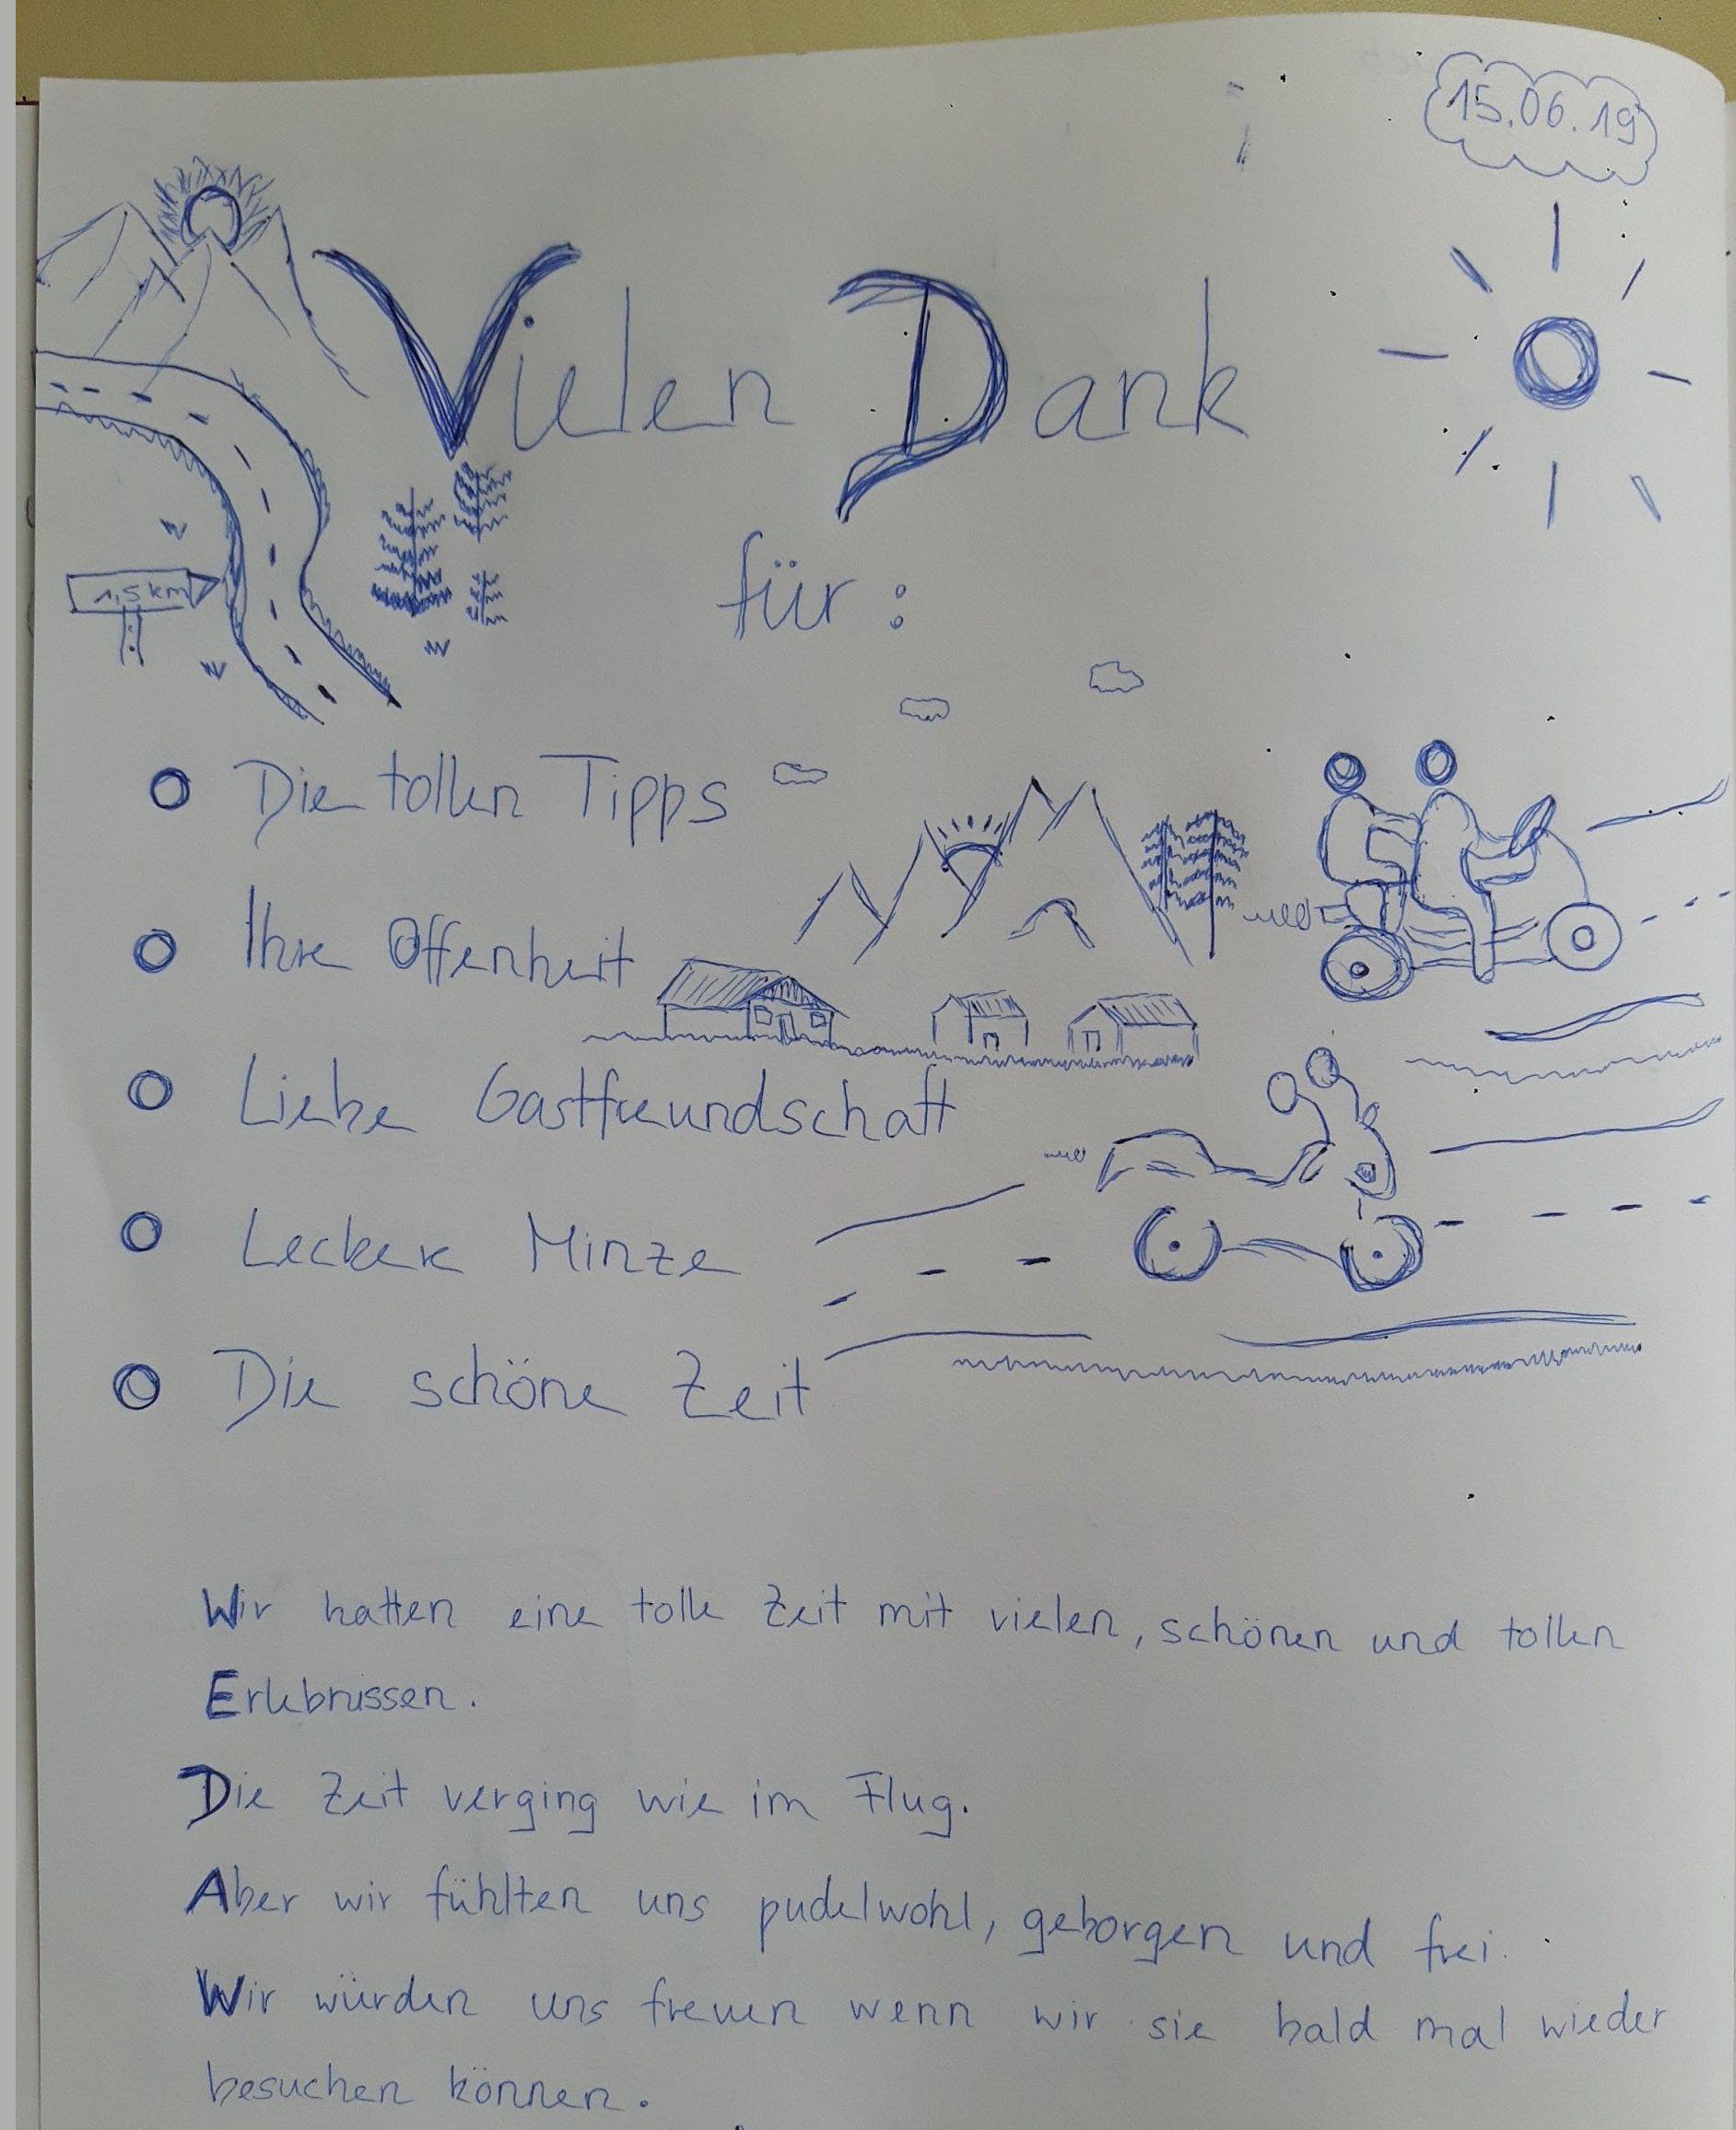 15.06.19
Vielen Dank
für:
1,5 km
Die tollen Tipps
Ihre Offenheit
Liebe Gastfreundschaft
Lecker Minze
Die schöne Zeit
Wir hatten eine tolle Zeit mit vielen, schönen und tollen
Erlebnissen.
Die Zeit verging wie im Flug.
Aber wir fühlten uns pudelwohl, geborgen und frei.
Wir würden uns freuen wenn wir sie bald mal wieder
besuchen können.